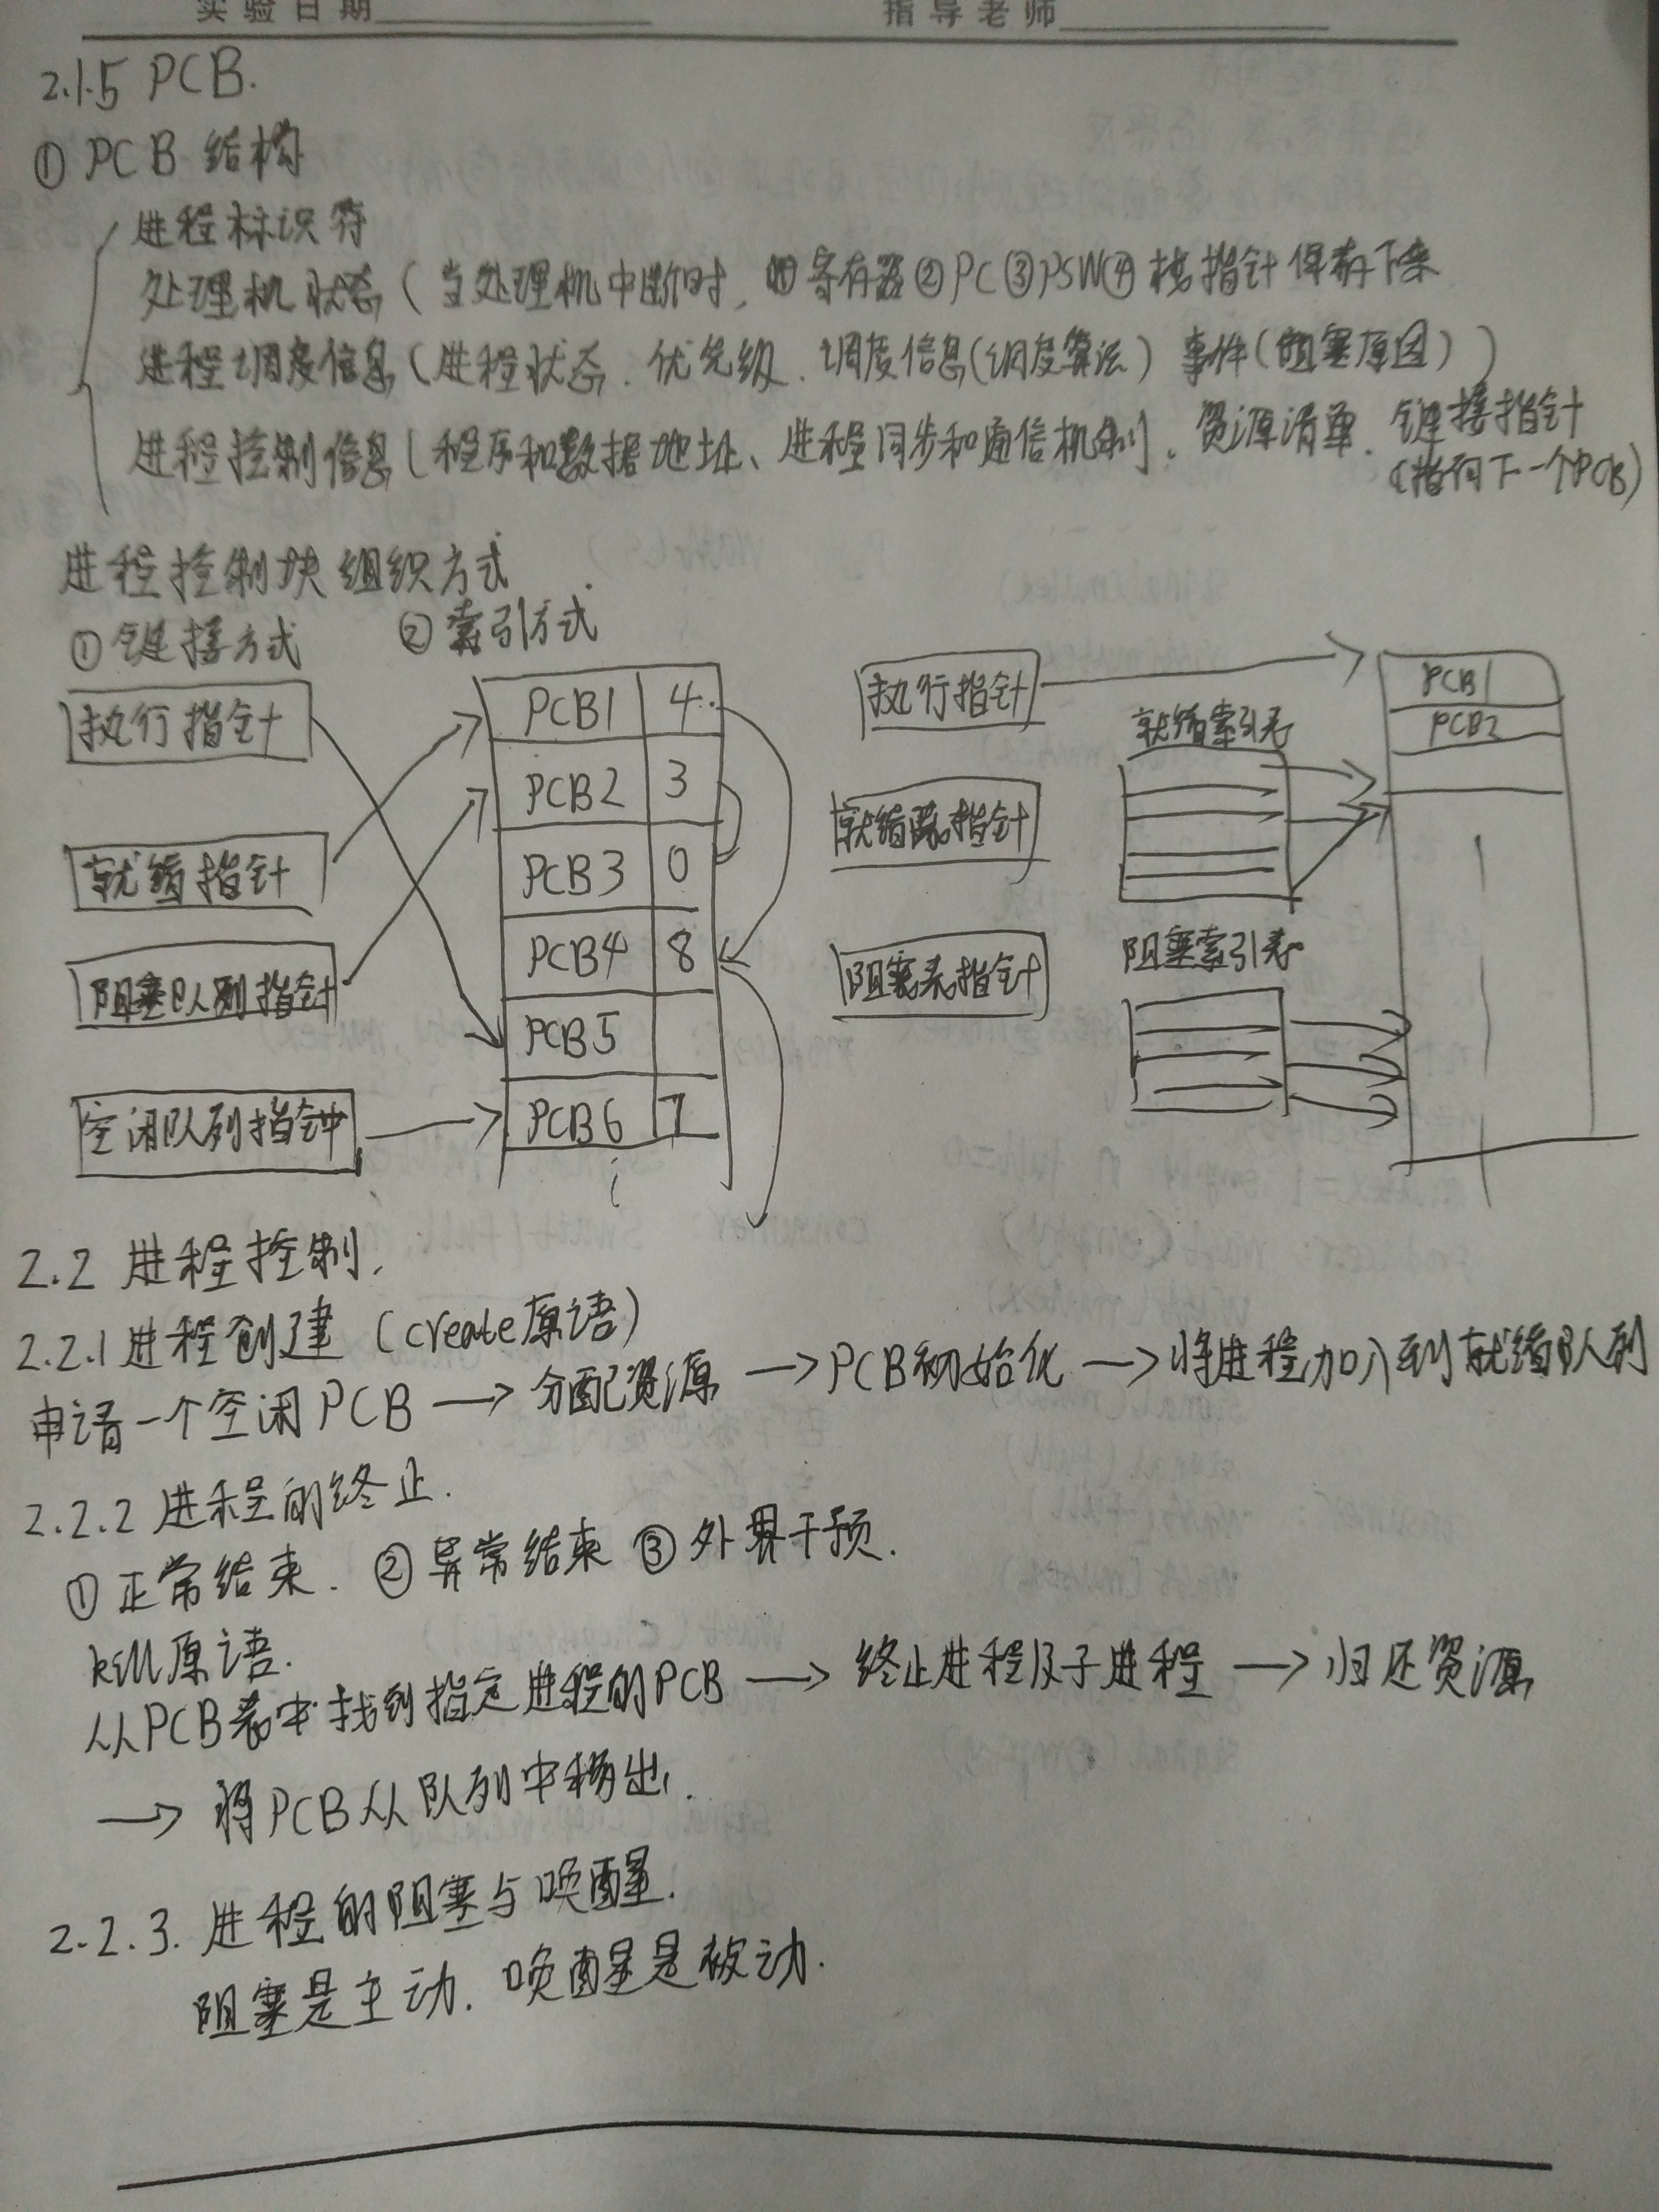 实验日期 指导老师
2.1.5 PCB.
① PCB 结构
进程标识符
处理机状态（当处理机中断时，①寄存器②PC③PSW④栈指针保存下来
进程调度信息（进程状态、优先级、调度信息(调度算法) 事件(阻塞原因)）
进程控制信息（程序和数据地址、进程同步和通信机制、资源清单、链接指针
(指向下一个PCB)
进程控制块组织方式
① 链接方式 ② 索引方式
执行指针
就绪指针
阻塞队列指针
空闲队列指针
PCB1 4
PCB2 3
PCB3 0
PCB4 8
PCB5
PCB6 7
执行指针
就绪表指针
阻塞表指针
就绪索引表
阻塞索引表
PCB1
PCB2
2.2 进程控制.
2.2.1 进程创建（create原语）
申请一个空闲PCB → 分配资源 → PCB初始化 → 将进程加入到就绪队列
2.2.2 进程的终止.
① 正常结束. ② 异常结束 ③ 外界干预.
kill原语.
从PCB表中找到指定进程的PCB → 终止进程及子进程 → 归还资源
→ 将PCB从队列中移出.
2.2.3. 进程的阻塞与唤醒.
阻塞是主动. 唤醒是被动.